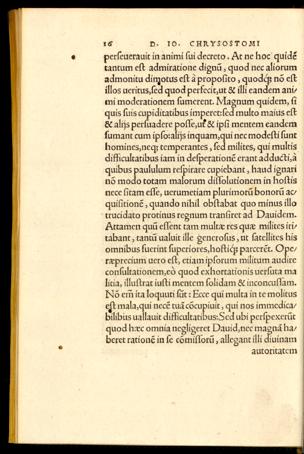 16 D. IO. CHRYSOSTOMI
perseuerauit in animi sui decreto. At ne hoc quidẽ
tantum est admiratione dignũ, quod nec aliorum
admonitu dimotus est à proposito, quodq́; nõ est
illos ueritus, sed quod perfecit, ut & illi eandem ani
mi moderationem sumerent. Magnum quidem, si
quis suis cupiditatibus imperet: sed multo maius est
& alijs persuadere posse, ut & ipsi mentem eandem
sumant cum ipso: alijs inquam, qui nec modesti sunt
homines, neq; temperantes, sed milites, qui multis
difficultatibus iam in desperationẽ erant adducti, à
quibus paululum respirare cupiebant, haud ignari
nõ modo totam malorum dissolutionem in hostis
nece sitam esse, uerumetiam plurimorũ bonorũ ac
quisitionẽ, quando nihil obstabat quo minus illo
trucidato protinus regnum transiret ad Dauidem.
Attamen quũ essent tam multæ res quæ milites irri
tabant, tantũ ualuit ille generosus, ut satellites his
omnibus fuerint superiores, hostiq́; parcerẽt. Ope
ræprecium uero est, etiam ipsorum militum audire
consultationem, eò quod exhortationis uersuta ma
litia, illustrat iusti mentem solidam & inconcussam.
Nõ em̃ ita loquuti sũt: Ecce qui multa in te molitus
est mala, qui necẽ tuã cõcupiuit, qui nos immedica/
bilibus uallauit difficultatibus: Sed ubi perspexerũt
quod hæc omnia negligeret Dauid, nec magnã ha
beret rationẽ in se cõmissorũ, allegant illi diuinam
autoritatem